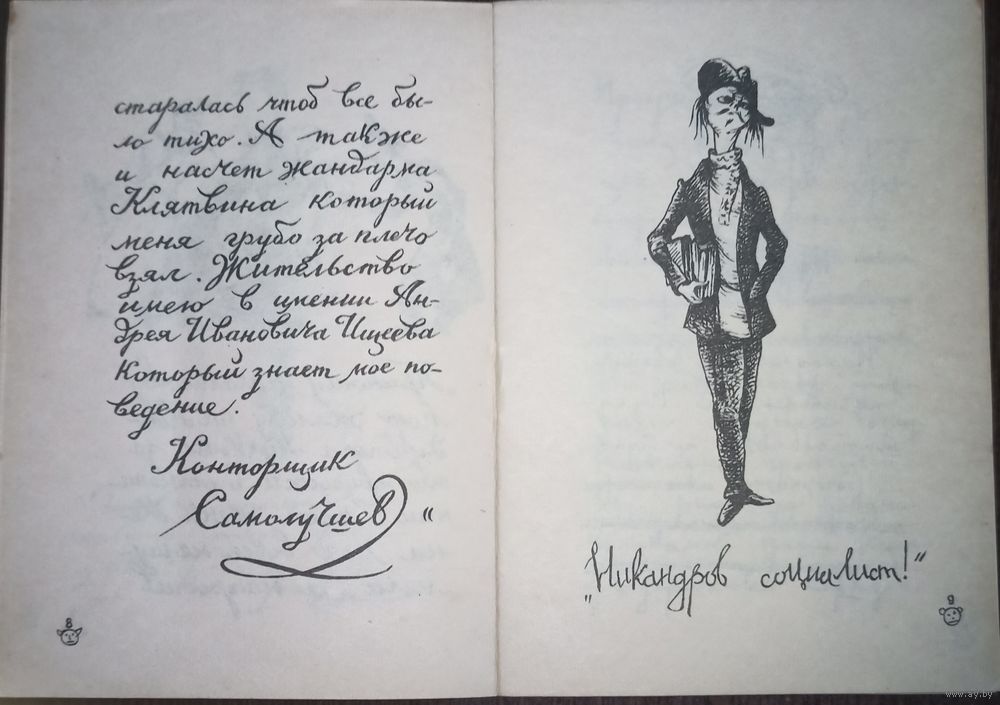 старалась чтоб все бы-
ло тихо. А также
и насчет жандарма
Клятвина который
меня грубо за плечо
взял. Жительство
имею в имении Ан-
дрея Ивановича Ищеева
который знает мое по-
ведение.
Конторщик
Самолучшев"
8
„Никандров социалист!"
9
www.ay.by